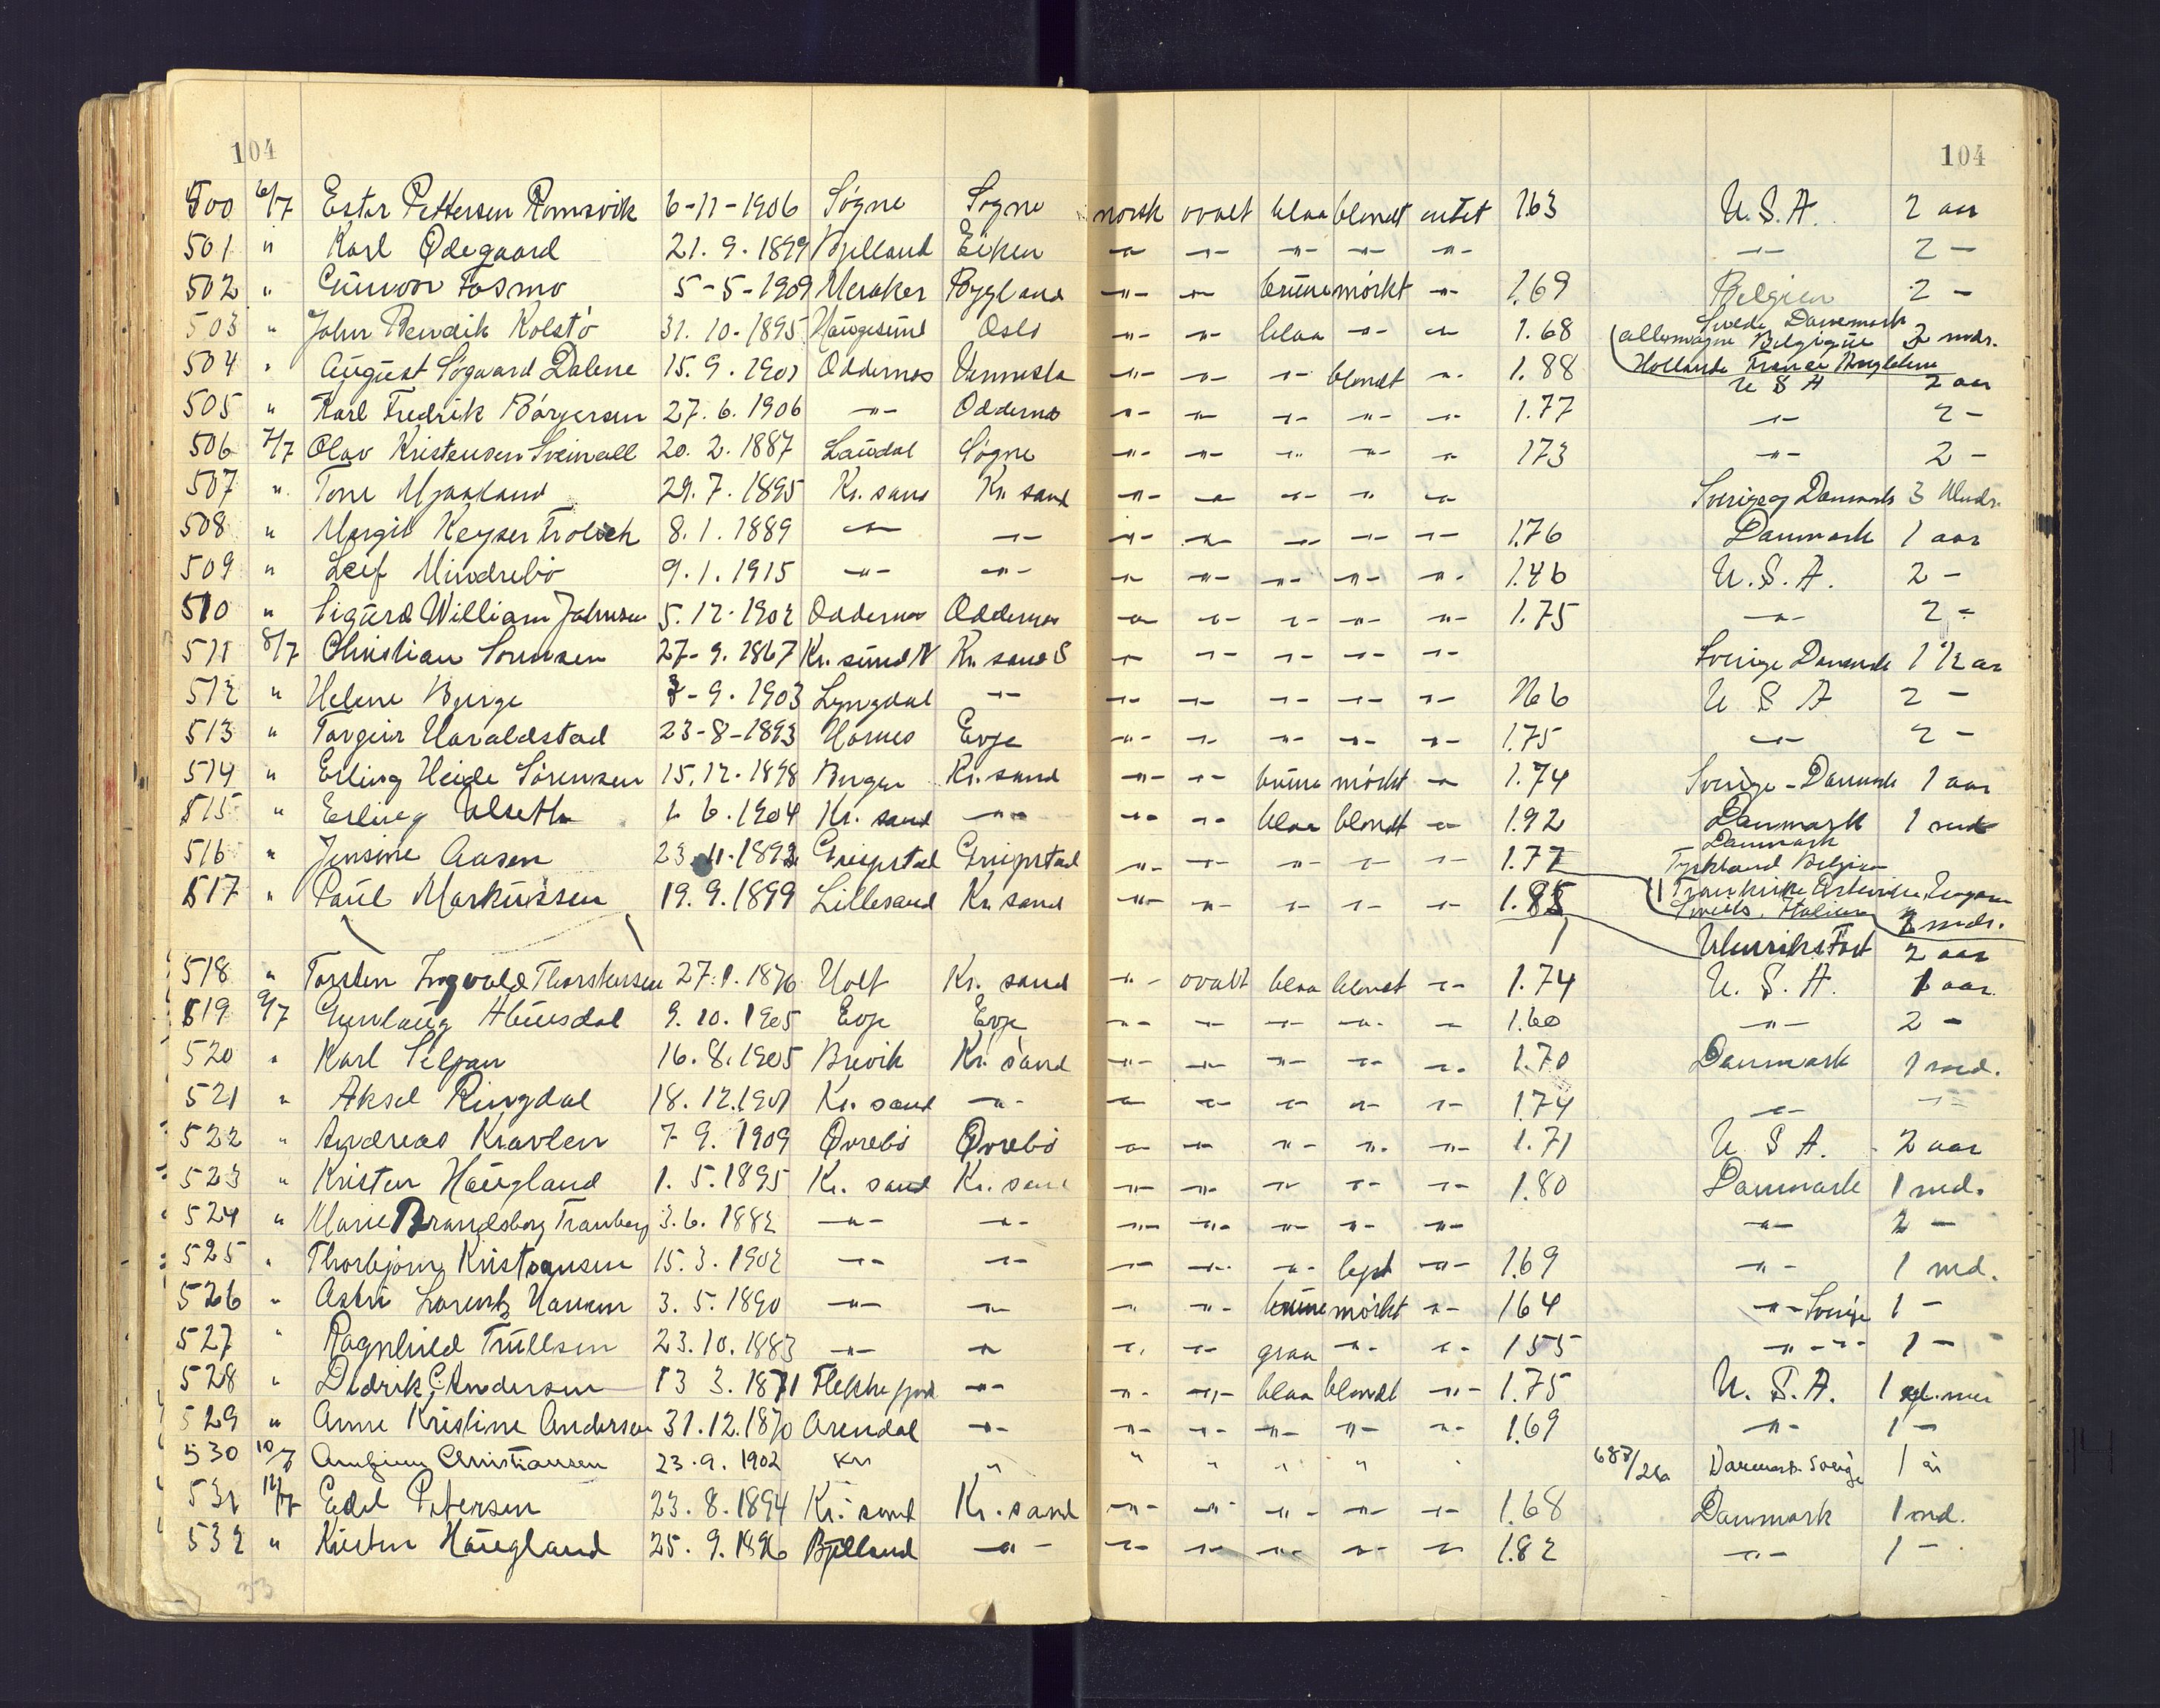 104 104
500 6/7 Ester Pettersen Romsvik 6-11-1906 Søgne Søgne norsk ovalt blaa blondt intet 163 U.S.A. 2 aar
501 " Karl Ødegaard 21.9.1899 Bjelland Eiken -"- -"- -"- -"- -"- -"- 2 -
502 " Gunvor Fosmo 5-5-1909 Meraker Bygland -"- -"- brune mørkt -"- 1.69 Belgien 2 -
503 " John Bendik Kolstø 31.10-1895 Haugesund Oslo -"- -"- blaa -"- -"- 1.68 Suede Danemark Allemagne Belgique Hollande France Angleterre 2 mdr.
504 " August Søgaard Dalene 15.9.1901 Oddernes Vennesla -"- -"- -"- blondt -"- 1.88 U S A 2 aar
505 " Karl Fredrik Børjersen 27.6.1906 -"- Oddernes -"- -"- -"- -"- -"- 1.77 -"- 2 -
506 7/7 Olav Kristensen Sveinall 20.2.1887 Laudal Søgne -"- -"- -"- -"- -"- 173 -"- 2 -
507 " Tone Mjaaland 29.7.1895 Kr. sand Kr. sand -"- -"- -"- -"- -"- Sverige og Danmark 3 Mndr.
508 " Margit Keyser Frølich 8.1.1889 -"- -"- -"- -"- -"- -"- -"- 1.76 Danmark 1 aar
509 " Leif Mindrebø 9.1.1915 -"- -"- -"- -"- -"- -"- -"- 1.46 U.S.A. 2 -
510 " Sigurd William Johnsen 5.12.1902 Oddernes Oddernes -"- -"- -"- -"- -"- 1.75 -"- 2 -
511 8/7 Christian Sørensen 27-9.1867 Kr. sund N Kr. sand S -"- -"- -"- -"- -"- Sverige Danmark 1 1/2 aar
512 " Helene Bjerge 3-9.1903 Lyngdal -"- -"- -"- -"- -"- -"- 166 U S A 2 -
513 " Torgeir Haraldstad 23-8-1893 Hornes Evje -"- -"- -"- -"- -"- 1.75 -"- 2 -
514 " Erling Heide Sørensen 15.12.1898 Bergen Kr. sand -"- -"- brune mørkt -"- 1.74 Sverige - Danmark 1 aar
515 " Erling Ulseth 1.6.1904 Kr. sand -"- -"- -"- blaa blondt -"- 1.92 Danmark 1 md
516 " Jensine Aasen 23.11.1893 Greipstad Greipstad -"- -"- -"- -"- -"- 1.77 Danmark Tyskland Belgien Frankrike Østerrike Ungarn Sveits, Italien 3 mdr.
517 " Paul Markussen 19.9.1899 Lillesand Kr. sand -"- -"- -"- -"- -"- 1.85 Utenriks Fart 2 aar
518 " Torsten Ingvald Thorstensen 27.1.1876 Holt Kr. sand -"- ovalt blaa blondt -"- 1.74 U.S.A. 1 aar.
519 9/7 Gunlaug 9.10.1905 Evje Evje -"- -"- -"- -"- -"- 1.60 -"- 2 -
520 " Karl Seljan 16.8.1905 Brevik Kr. sand -"- -"- -"- -"- -"- 1.70 Danmark 1 md.
521 " Aksel Ringdal 18.12.1901 Kr. sand -"- -"- -"- -"- -"- -"- 174 -"- -"-
522 " Andreas Kravlen 7 9.1909 Øvrebø Øvrebø -"- -"- -"- -"- -"- 1.71 U S A. 2 aar
523 " Kristen Haugland 1.5.1895 Kr. sand Kr. sand -"- -"- -"- -"- -"- 1.80 Danmark 1 md.
524 " Marie Brandsborg Tranberg 3.6.1882 -"- -"- -"- -"- -"- -"- -"- -"- 2 -
525 " Thorbjørn Kristiansen 15.3.1902 -"- -"- -"- -"- -"- lyst -"- 1.69 -"- 1 md.
526 " Astri Lorentz Hansen 3.5.1890 -"- -"- " -"- brune mørkt -"- 164 -"- Sverige 1 -
527 " Ragnhild Trullsen 23.10.1883 -"- -"- -"- -"- graa -"- -"- 155 -"- -"- 1 -
528 " Didrik C. Andersen 13 3.1871 Flekkefjord -"- -"- -"- blaa blondt -"- 1.75 U.S.A. 1
529 " Anne Kristine Andersen 31.12.1870 Arendal -"- -"- -"- -"- -"- -"- 1.69 -"- 1 -
530 10/7 Arnfinn Christiansen 23.9.1902 Krs " " " " " 1 683/26 Danmark Sverige 1 år
531 12/7 Edel Petersen 23.8.1894 Kr. sand Kr. sand -"- -"- -"- -"- -"- 1.68 Danmark 1 md.
532 " Kristen Haugland 25.9.1896 Bjelland -"- -"- -"- -"- -"- -"- 1.82 -"- 1 -
33